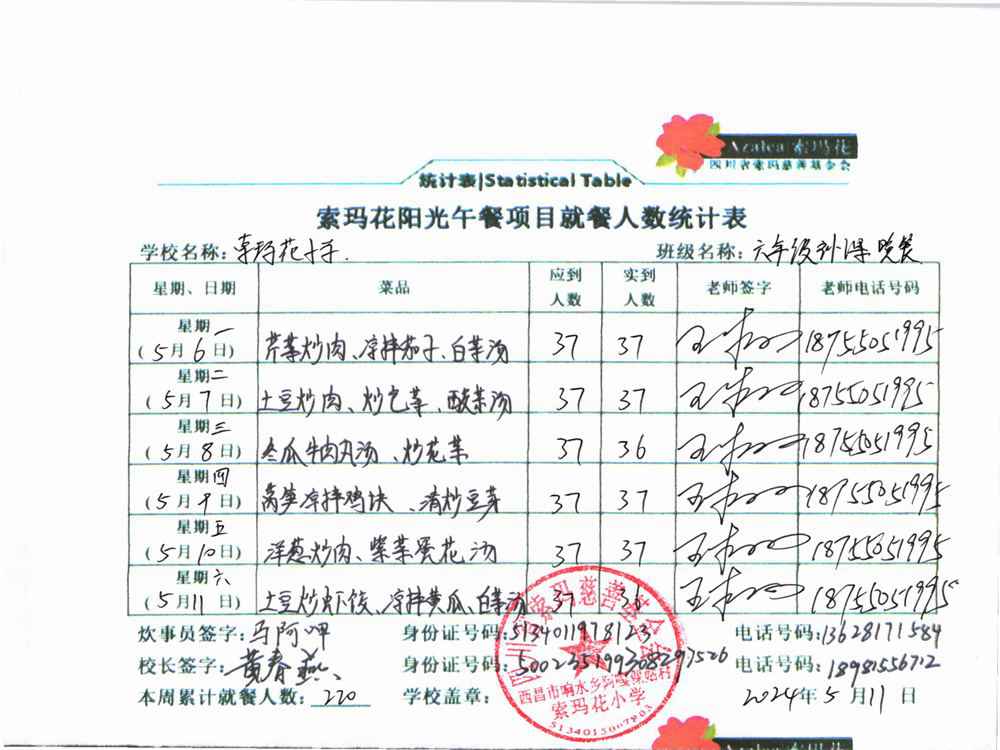 Azalea 索玛花
四川省索玛慈善基金会
统计表|Statistical Table
索玛花阳光午餐项目就餐人数统计表
学校名称: 索玛花小学. 班级名称:六年级
星期、日期 菜品 应到人数 实到人数 老师签字 老师电话号码
星期一 (5月6日) 芹菜炒肉、凉拌茄子、白菜汤 37 37 18755051995
星期二 (5月7日) 土豆炒肉、炒包菜、酸菜汤 37 37 18755051995
星期三 (5月8日) 冬瓜牛肉丸汤、炒花菜 37 36 18755051995
星期四 (5月9日) 莴笋凉拌鸡块、清炒豆芽 37 37 18755051995
星期五 (5月10日) 洋葱炒肉、紫菜蛋花汤 37 37 18755051995
星期六 (5月11日) 土豆炒虾饺、凉拌黄瓜、白菜汤 37 36 18755051995
炊事员签字:马阿呷 身份证号码: 电话号码:13628171584
校长签字:黄春燕 身份证号码: 电话号码:18981556712
本周累计就餐人数: 220 学校盖章: 2024年5月11日
四川省索玛慈善基金会
西昌市响水乡
索玛花小学
5134015007803
Azalea 索玛花